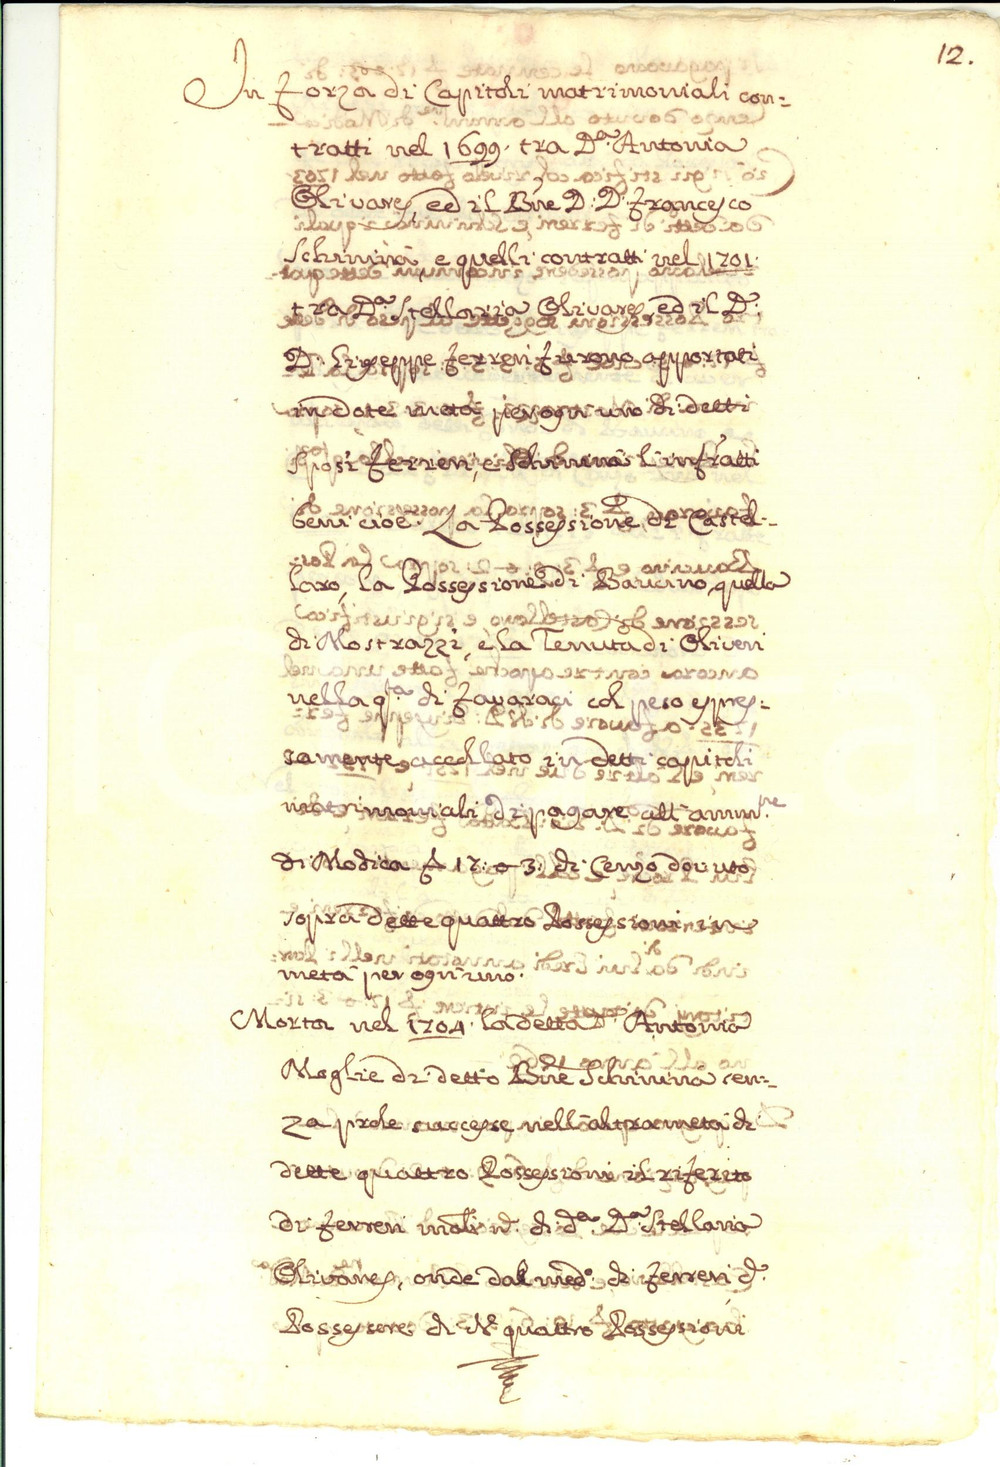 12.
In forza di Capitoli matrimoniali con=
tratti nel 1699. tra D.ª Antonia
Olivares, ed il Bne D: D: Francesco
Schininà, e quelli contratti nel 1701.
tra D.ª Stellaria Olivares ed il D.
D. Giuseppe ferreri apportati
in dote metà per ogn'uno di detti
sposi ferreri, e Schininà l'infratti
beni cioè. La Possessione di Castel=
laro, la Possessione di Baucino, quella
di Mostrazzi, e la Tenuta di Oliveri
nella q.ª di favaragi col peso espres=
samente accollato in detti capitoli
matrimoniali di pagare all'amm.ne
di Modica 12: 0 3: di Censo dovuto
sopra dette quattro Possessioni in
metà per ogn'uno.
Morta nel 1704. la detta D.ª Antonia
Moglie di detto Bne Schininà sen=
za prole successe nell'altra metà di
dette quattro Possessioni il riferito
di ferreri di d.ª D.ª Stellaria
Olivares, onde dal med.º di ferreri
Possessore di quattro Possessioni